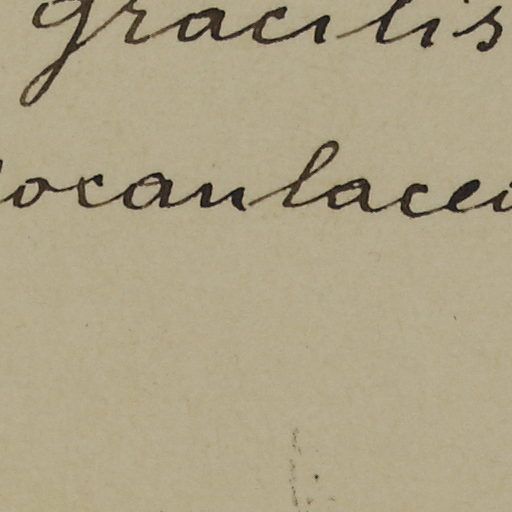 gracilis
ocaulacea